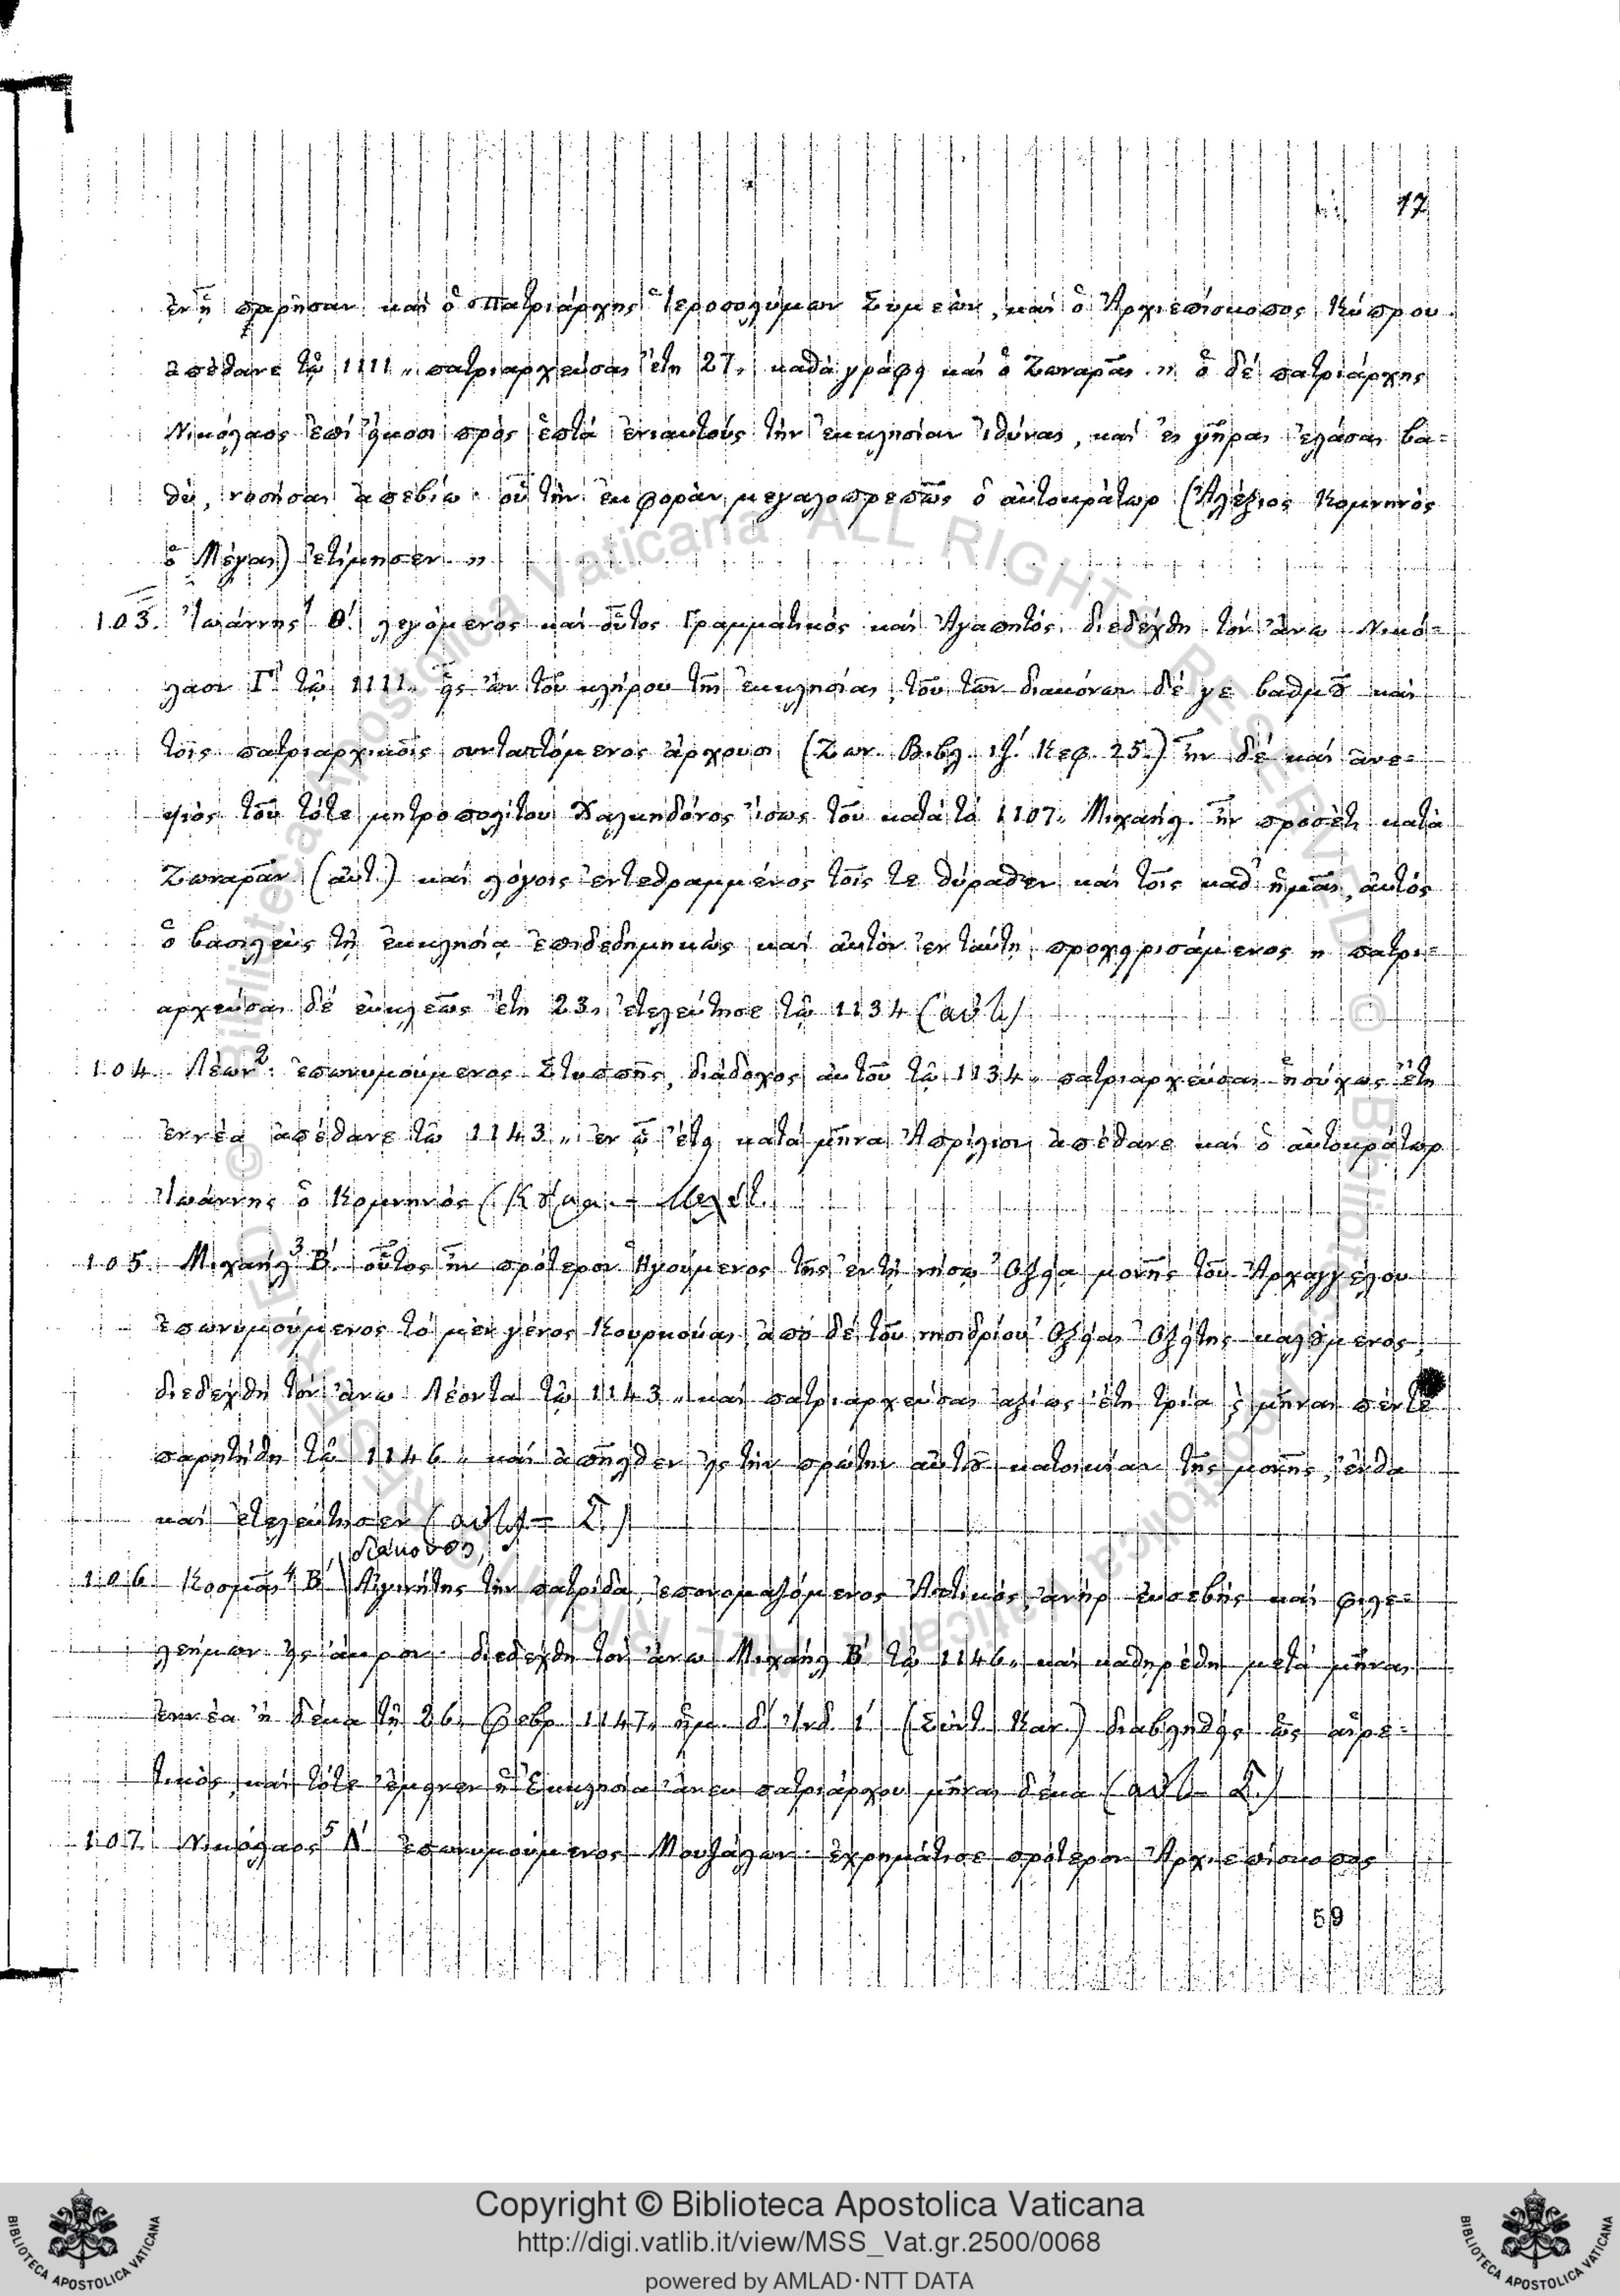 17
ἐν ᾗ παρῆσαν καὶ ὁ Πατριάρχης Ἱεροσολύμων Συμεὼν, καὶ ὁ Ἀρχιεπίσκοπος Κύπρου.
ἀπέθανε τῷ 1111,, πατριαρχεύσας ἔτη 27, καθὰ γράφει καὶ ὁ Ζωναρᾶς ,, ὁ δέ πατριάρχης
Νικόλαος ἐπί εἴκοσι πρὸς ἑπτά ἐνιαυτούς τὴν ἐκκλησίαν ἰθύνας, καί εἰς γῆρας ἐλάσας βα=
θὺ, νοσήσας ἀπεβίω. οὗ τὴν ἐκφορὰν μεγαλοπρεπῶς ὁ αὐτοκράτωρ (Ἀλέξιος Κομνηνός
ὁ Μέγας) ἐτίμησεν ,,
103. Ἰωάννης 1 Θ΄. λεγόμενος καί οὗτος Γραμματικός καί Ἀγαπητός. διεδέχθη τόν ἄνω Νικό=
λαον Γ΄. τῷ 1111. εἷς ὢν τοῦ κλήρου τῆς ἐκκλησίας, τοῦ τῶν διακόνων δέ γε βαθμοῦ καί
τοῖς πατριαρχικοῖς συνταττόμενος ἄρχουσι (Ζων. Βιβλ. ιζ΄. Κεφ. 25.) ἦν δέ καί ἀνε=
ψιός τοῦ τότε μητροπολίτου Χαλκηδόνος ἴσως τοῦ κατά τό 1107,, Μιχαήλ. ἦν προσέτι κατά
Ζωναρᾶν (αὐτ.) καί λόγοις ἐντεθραμμένος τοῖς τε θύραθεν καί τοῖς καθ' ἡμᾶς, αὐτός
ὁ βασιλεύς τῇ ἐκκλησίᾳ ἐπιδεδημηκώς καί αὐτόν ἐν ταύτῃ προχειρισάμενος ,, πατρι=
αρχεύσας δέ εὐκλεῶς ἔτη 23,, ἐτελεύτησε τῷ 1134 (αὐτ)
104. Λέων 2. ἐπωνυμούμενος Στυππῆς, διάδοχος αὐτοῦ τῷ 1134,, πατριαρχεύσας ἡσύχως ἔτη
ἐννέα ἀπέθανε τῷ 1143,, ἐν ᾧ ἔτει κατά μῆνα Ἀπρίλιον ἀπέθανε καί ὁ αὐτοκράτωρ
Ἰωάννης ὁ Κομνηνός
105. Μιχαήλ 3 Β΄. οὗτος ἦν πρότερον Ἡγούμενος τῆς ἐν τῇ νήσῳ Ὀξείᾳ μονῆς τοῦ Ἀρχαγγέλου
ἐπωνυμούμενος τό μέν γένος Κουρκούας, ἀπό δέ τοῦ νησιδρίου Ὀξείας Ὀξείτης καλούμενος,
διεδέχθη τόν ἄνω Λέοντα τῷ 1143,, καί πατριαρχεύσας ἀξίως ἔτη τρία ἤ μῆνας πέντε
παρῃτήθη τῷ 1146,, καί ἀπῆλθεν εἰς τήν πρώτην αὐτοῦ κατοικίαν τῆς μονῆς, ἔνθα
καί ἐτελεύτησεν (αὐτ. – Σ)
διάκονος,
106 Κοσμᾶς 4 Β΄ Αἰγινήτης τήν πατρίδα, ἐπονομαζόμενος Ἀττικός, ἀνήρ εὐσεβής καί φιλε=
λεήμων εἰς ἄκρον. διεδέχθη τόν ἄνω Μιχαήλ Β΄ τῷ 1146,, καί καθῃρέθη μετά μῆνας
ἐννέα ἤ δέκα τῇ 26, Φεβρ. 1147,, ἡμ. δ΄ Ἰνδ. ί (Σύντ. Καν.) διαβληθείς ὡς αἱρε=
τικός, καί τότε ἔμεινεν ἡ Ἐκκλησία ἄνευ πατριάρχου μῆνας δέκα (αὐτ – Σ.)
107. Νικόλαος 5 Δ΄ ἐπωνυμούμενος Μουζάλων. ἐχρημάτισε πρότερον Ἀρχιεπίσκοπος
59
© Biblioteca Apostolica Vaticana ALL RIGHTS RESERVED
Copyright © Biblioteca Apostolica Vaticana
http://digi.vatlib.it/view/MSS_Vat.gr.2500/0068
powered by AMLAD·NTT DATA
BIBLIOTECA APOSTOLICA VATICANA
BIBLIOTECA APOSTOLICA VATICANA